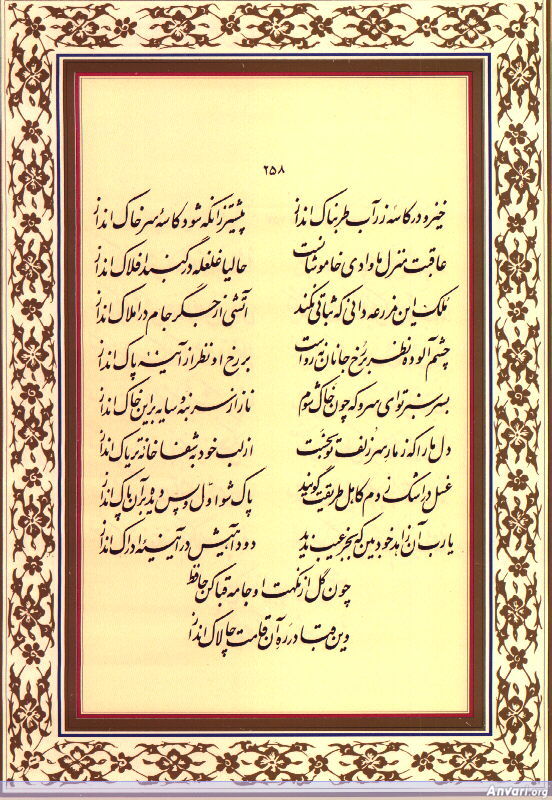 ۲۵۸
خیز و در کاسه زر آب طربناک انداز پیشتر زانکه شود کاسه سر خاک انداز
عاقبت منزل ما وادی خاموشانست حالیا غلغله در گنبد افلاک انداز
ملک این مزرعه دانی که ثباتی نکند آتشی از جگر جام در املاک انداز
چشم آلوده نظر بر رخ جانان نه رواست بر رخ او نظر از آینه پاک انداز
بسر سبز تو ای سرو که چون خاک شوم ناز از سر بنه و سایه بر این خاک انداز
دل ما را که ز مار سر زلف تو بخست از لب خود بشفا خانه تریاک انداز
غسل در اشک زدم کاهل طریقت گویند پاک شو اول و پس دیده بر آن پاک انداز
یا رب آن زاهد خودبین که بجز عیب ندید دود آهیش در آیینه ادراک انداز
چون گل از نکهت او جامه قبا کن حافظ
وین قبا در ره آن قامت چالاک انداز
Anvari.org